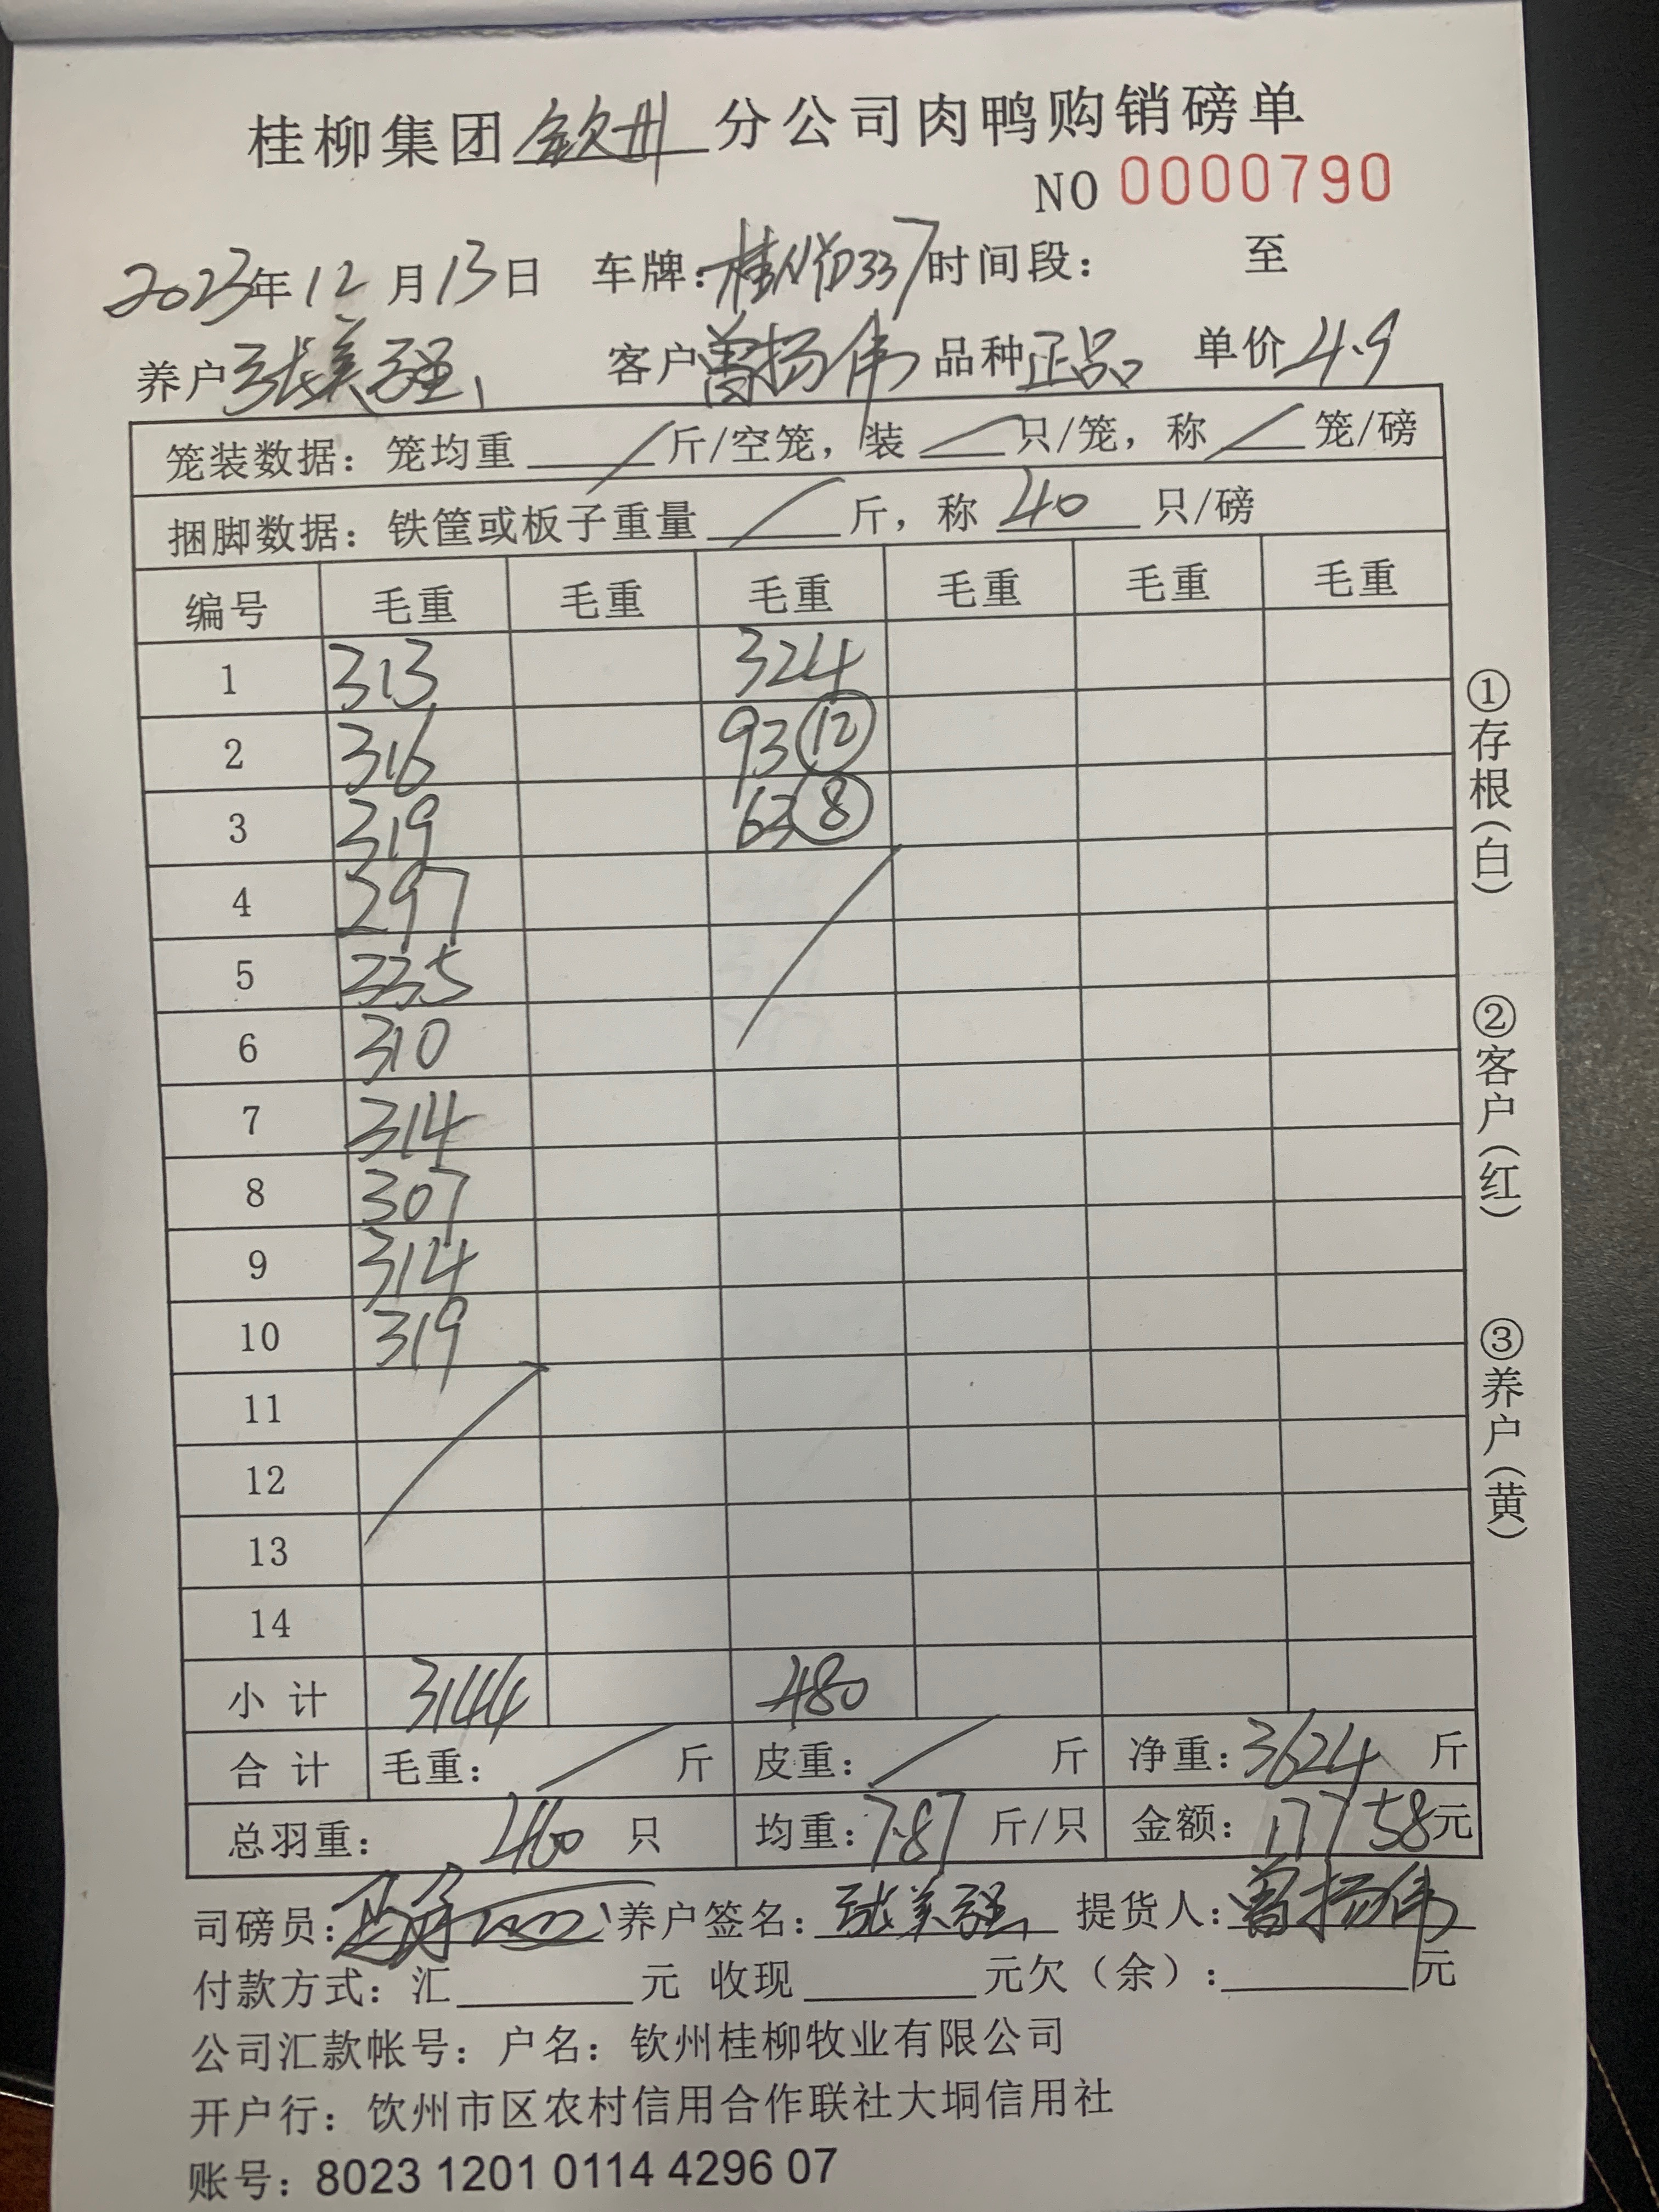 桂柳集团钦州分公司肉鸭购销磅单
NO 0000790
2023年12月13日 车牌：桂 D337 时间段： 至
养户张美强 客户曾扬伟 品种正品 单价4.9
笼装数据：笼均重 / 斤/空笼，装 / 只/笼，称 / 笼/磅
捆脚数据：铁筐或板子重量 / 斤，称 40 只/磅
编号 毛重 毛重 毛重 毛重 毛重 毛重
1 313 324
2 316 93 ⑫
3 319 63 ⑧
4 297
5 335
6 310
7 314
8 307
9 314
10 319
11
12
13
14
小计 3144 480
合计 毛重： / 斤 皮重： / 斤 净重：3624 斤
总羽重： 460 只 均重：7.87 斤/只 金额：17758元
司磅员： 养户签名：张美强 提货人：曾扬伟
付款方式：汇 元 收现 元欠（余）： 元
公司汇款帐号：户名：钦州桂柳牧业有限公司
开户行：钦州市区农村信用合作联社大垌信用社
账号：8023 1201 0114 4296 07
①存根（白）
②客户（红）
③养户（黄）